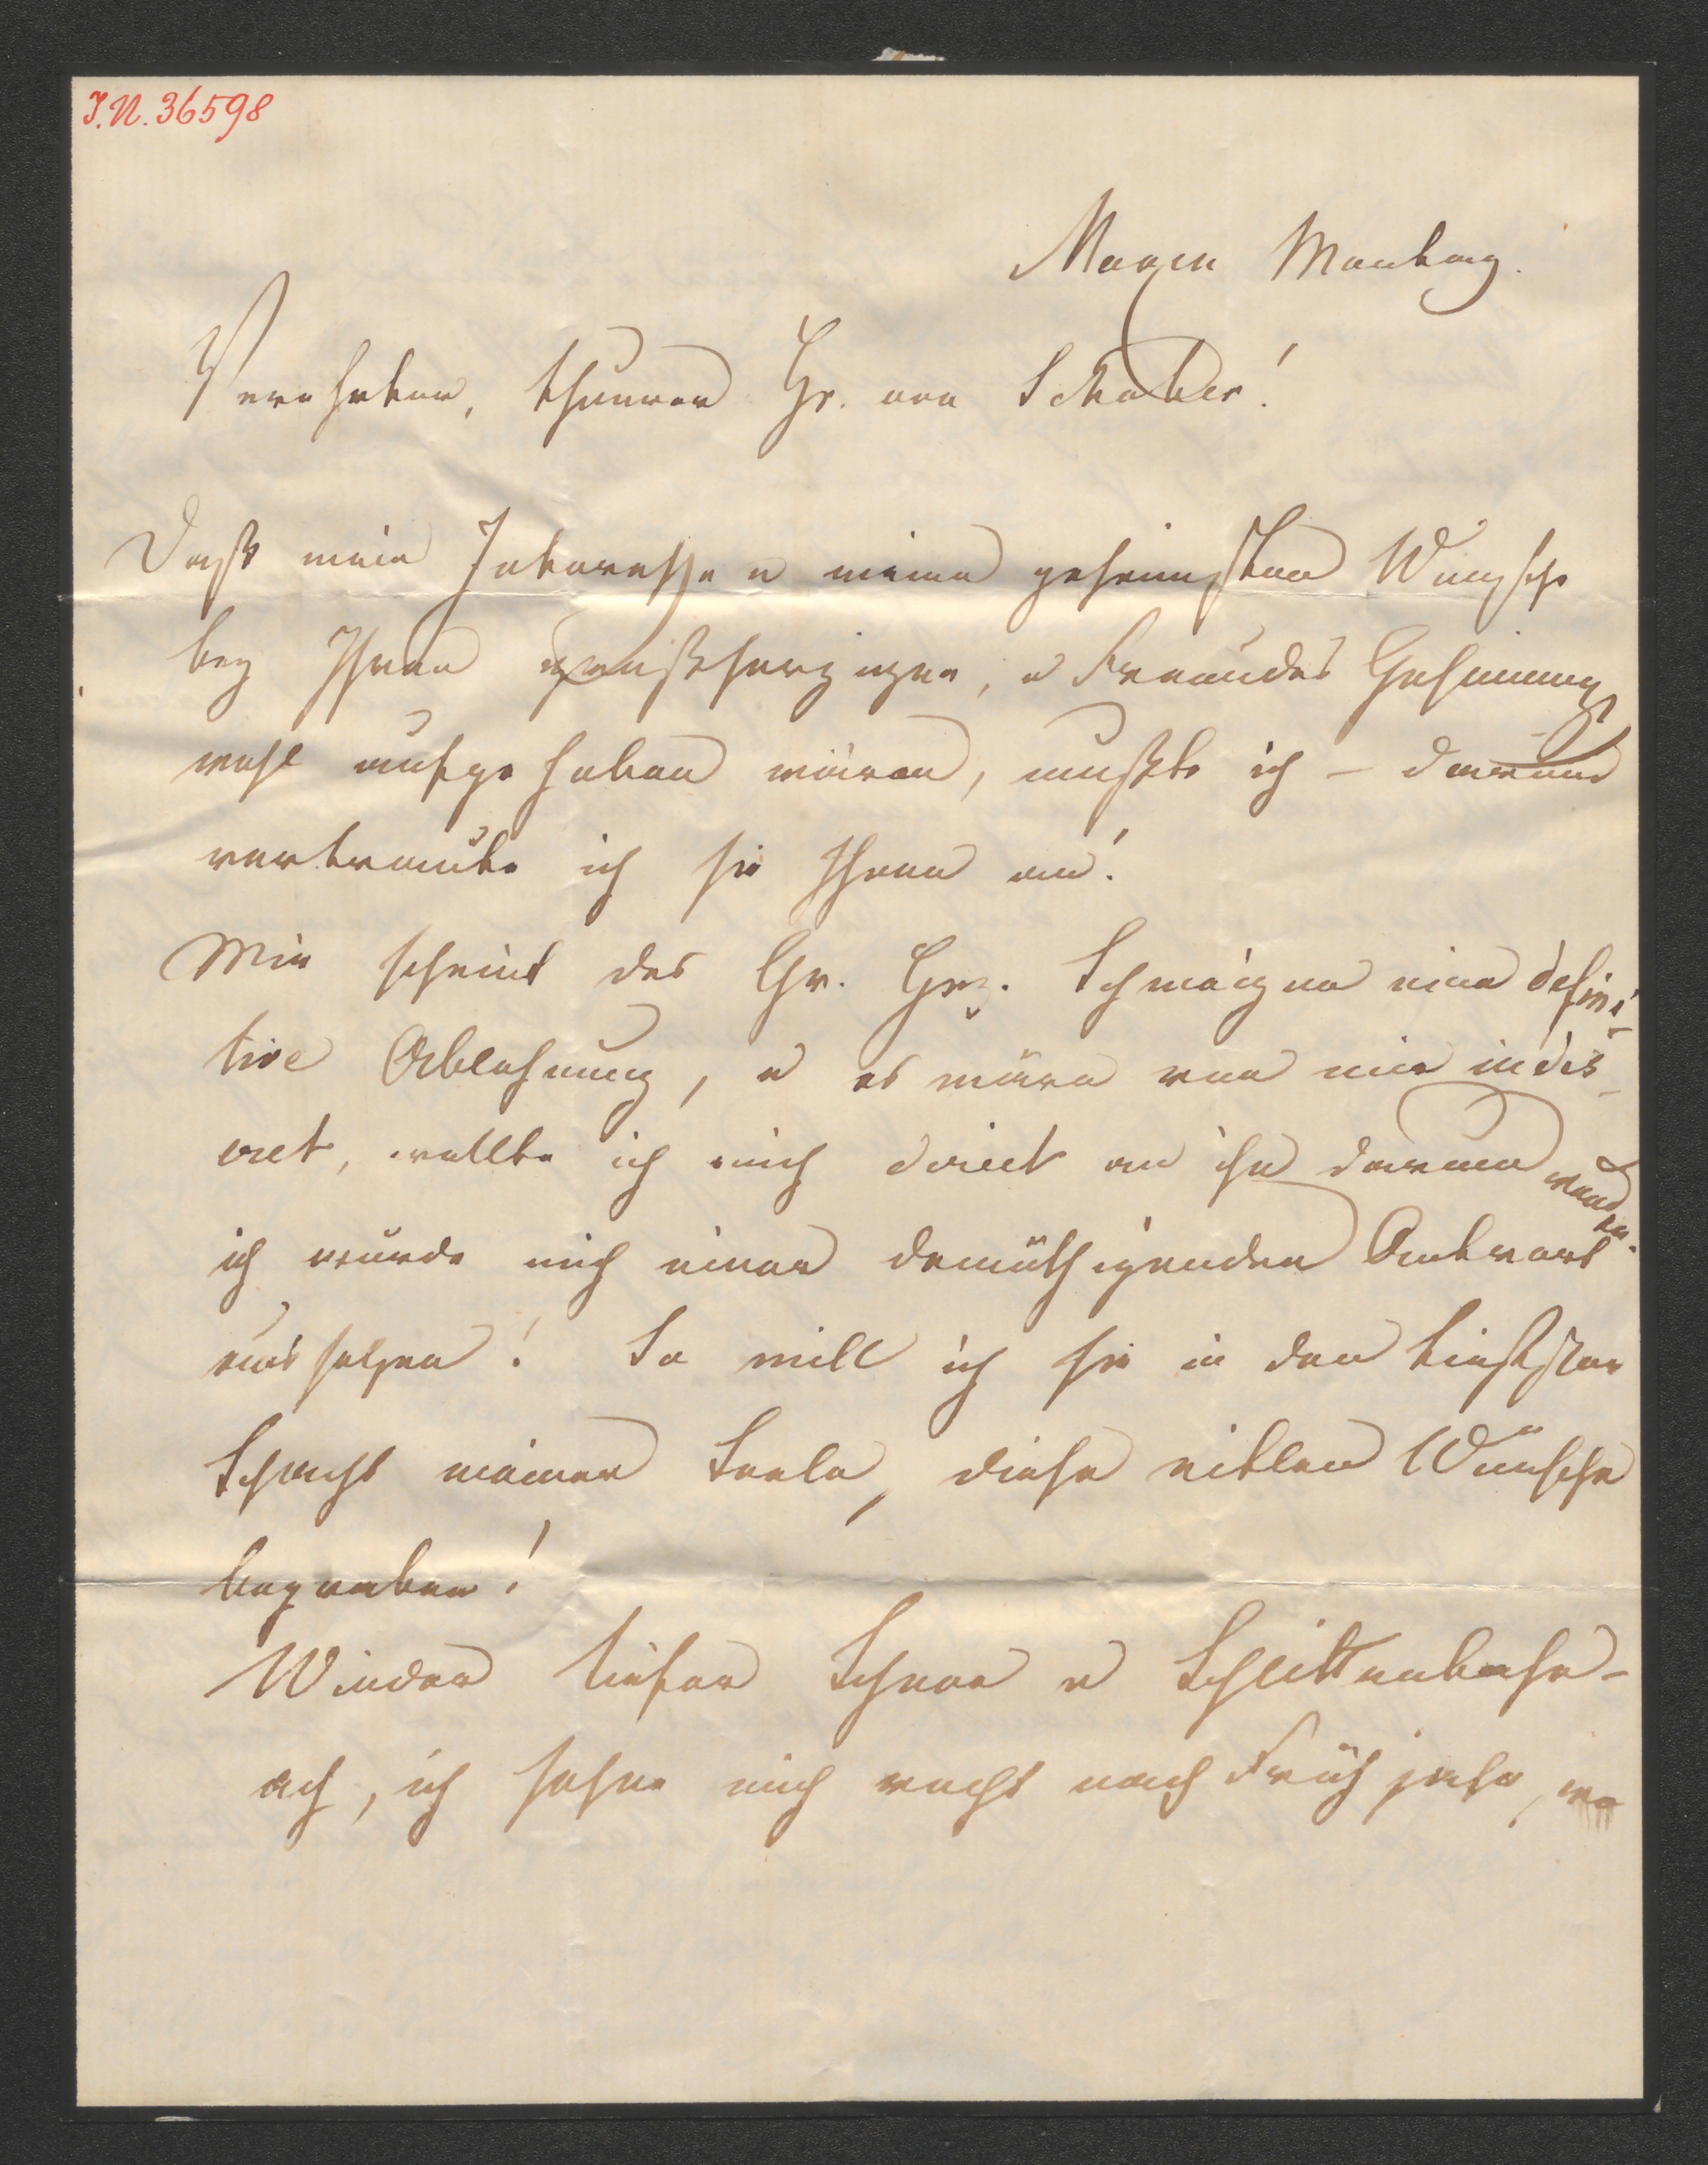 I.N. 36598
Montag.
Verehrter, theurer Hr. von Schober!
Daß mein Interesse u meine geheimsten Wünsche
bey Ihrer großherzigen, u Freundes Gesinnung
wohl aufgehoben wären, wußte ich – darum
vertraute ich sie Ihnen an!
Mir scheint des Gr. Hrz. Schweigen eine defini-
tive Ablehnung, u es wäre von mir indis-
cret, wollte ich mich direct an ihn darum wenden.
ich würde mich einer demüthigenden Antwort
aussetzen! So will ich sie in den tiefsten
Schacht meiner Seele, diese eitlen Wünsche
begraben!
Wieder tiefer Schnee u Schlittenbahn –
ach, ich sehne mich recht nach Frühjahr, wo